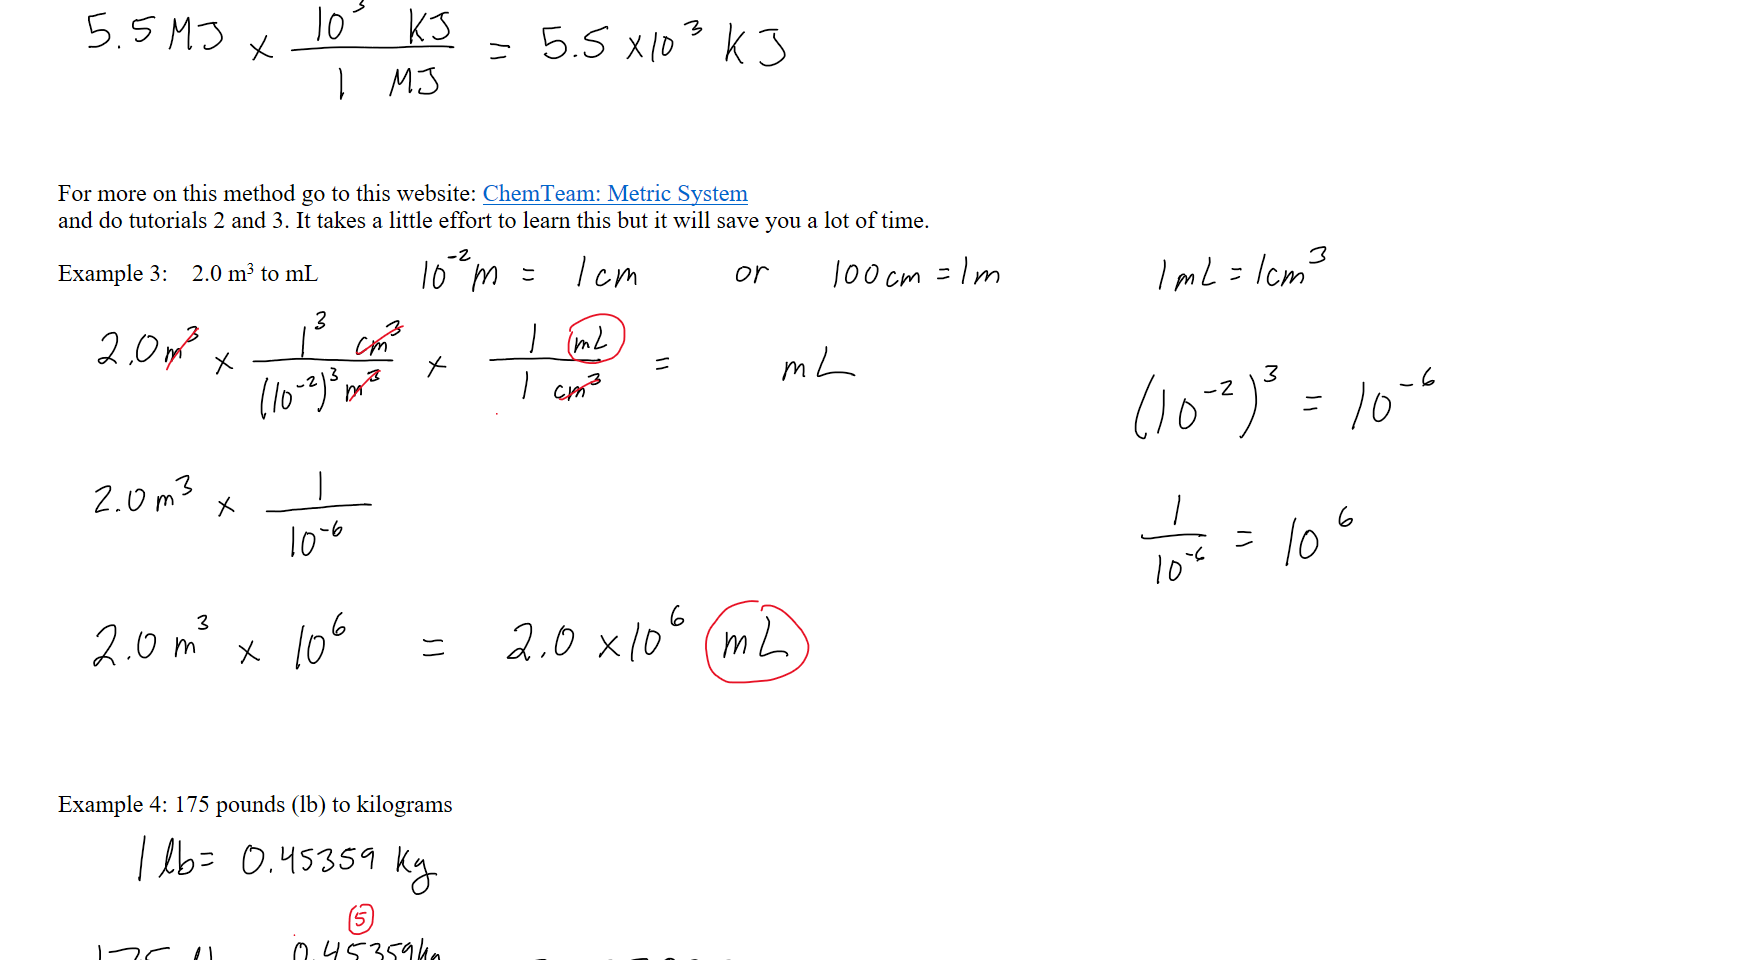 5.5 MJ × 10³ KJ / 1 MJ = 5.5 ×10³ KJ
For more on this method go to this website: ChemTeam: Metric System
and do tutorials 2 and 3. It takes a little effort to learn this but it will save you a lot of time.
Example 3: 2.0 m³ to mL 10⁻² m = 1 cm or 100 cm = 1 m 1 mL = 1 cm³
2.0 m³ × 1³ cm³ / (10⁻²)³ m³ × 1 mL / 1 cm³ = mL (10⁻²)³ = 10⁻⁶
2.0 m³ × 1 / 10⁻⁶ 1 / 10⁻⁶ = 10⁶
2.0 m³ × 10⁶ = 2.0 ×10⁶ mL
Example 4: 175 pounds (lb) to kilograms
1 lb = 0.45359 kg
5
0.45359 kg